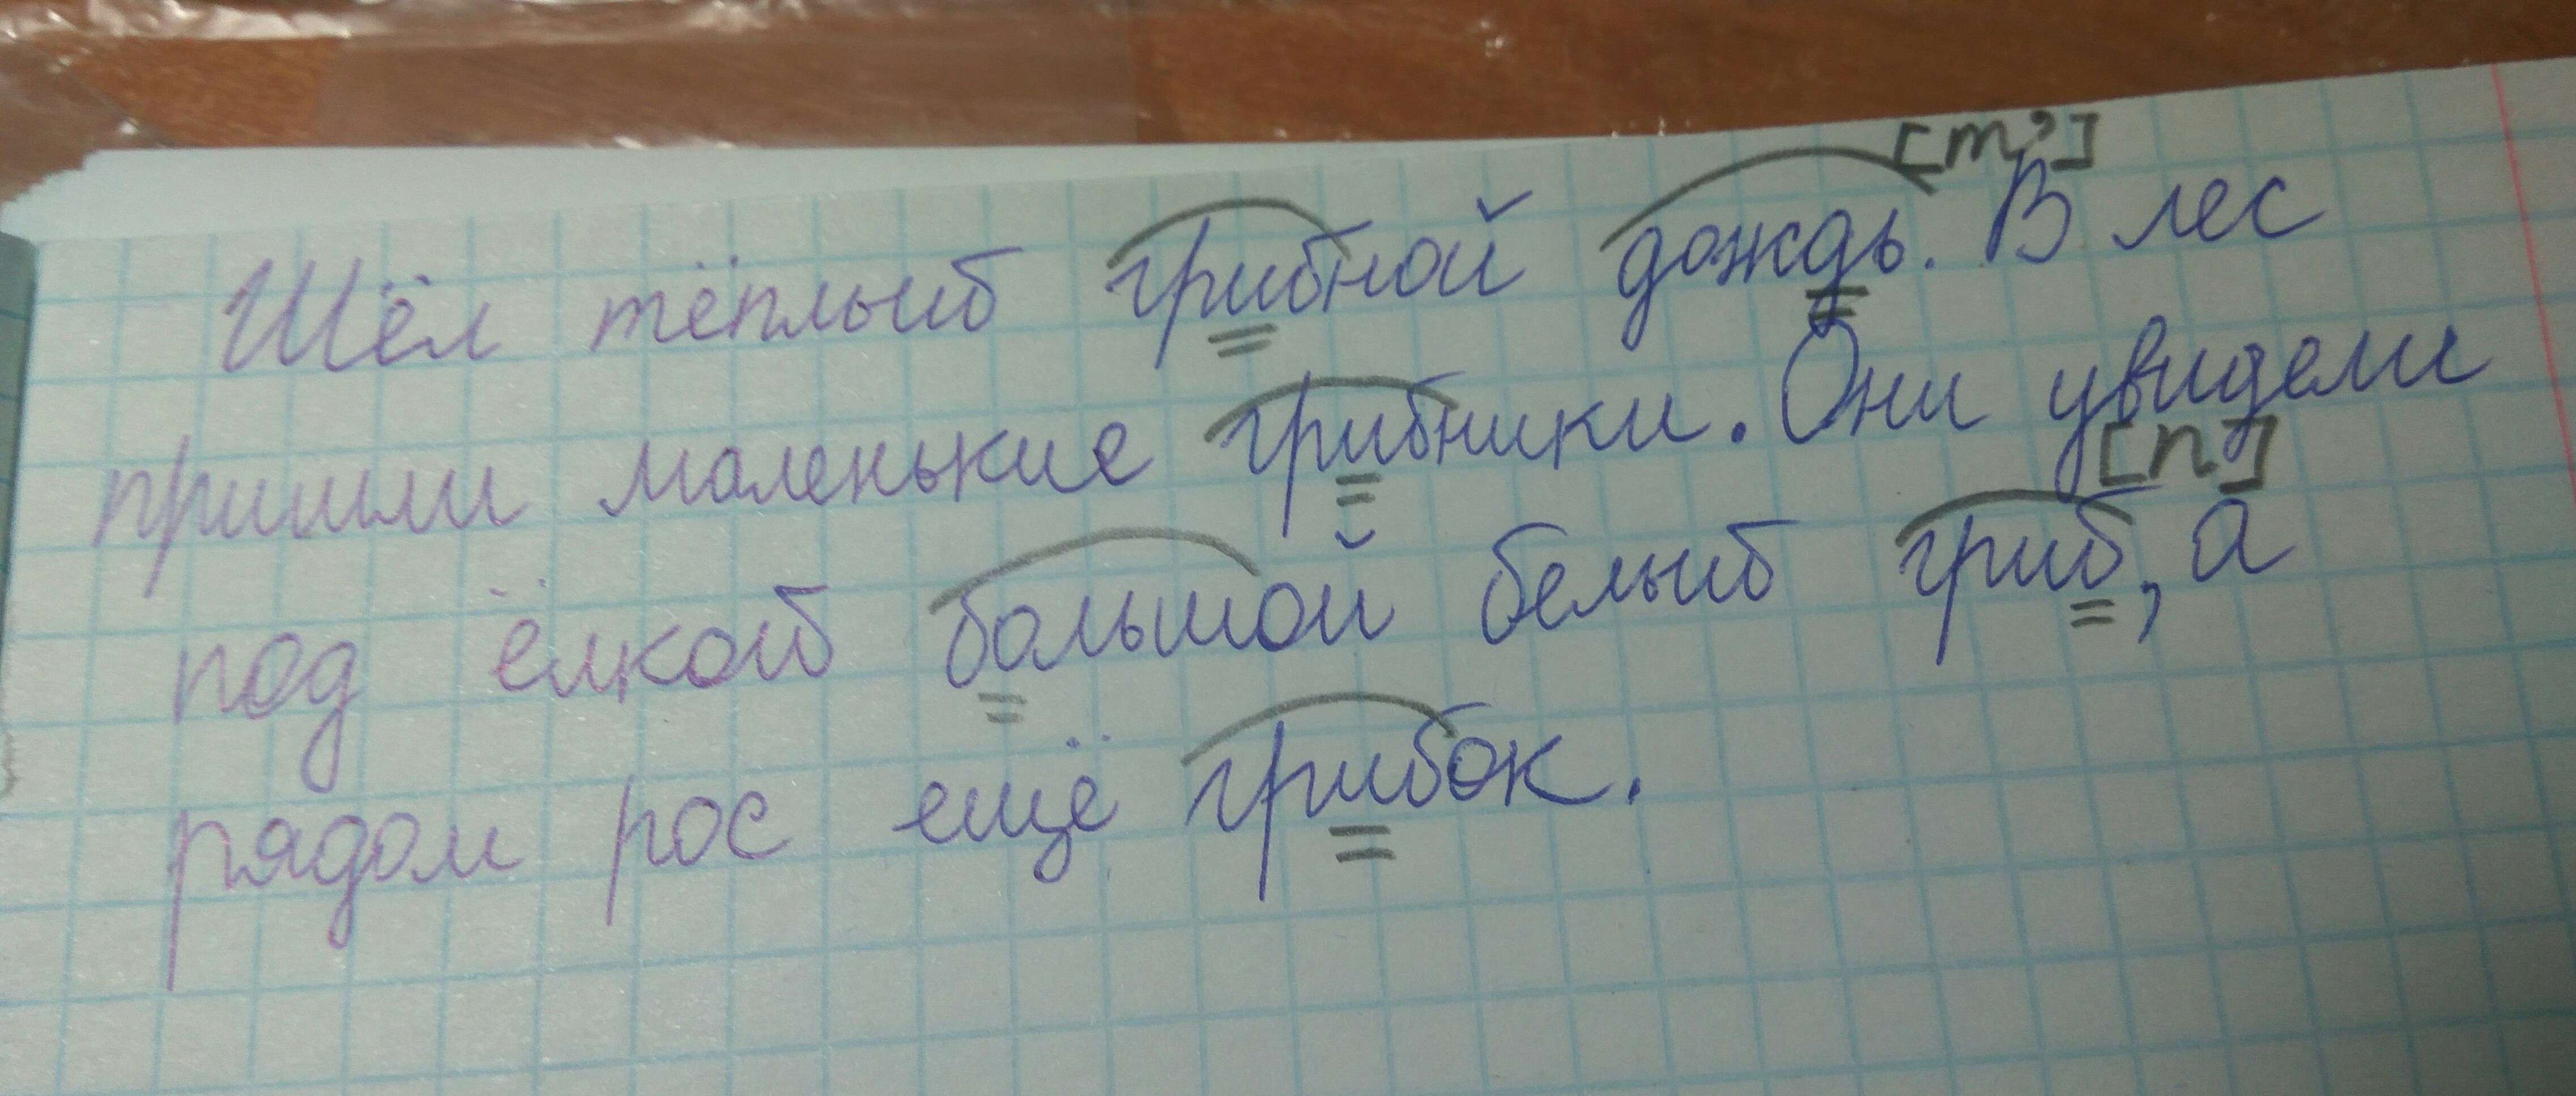 [т']
Шёл тёплый грибной дождь. В лес
пришли маленькие грибники. Они увидели
[п]
под ёлкой большой белый гриб, а
рядом рос ещё грибок.